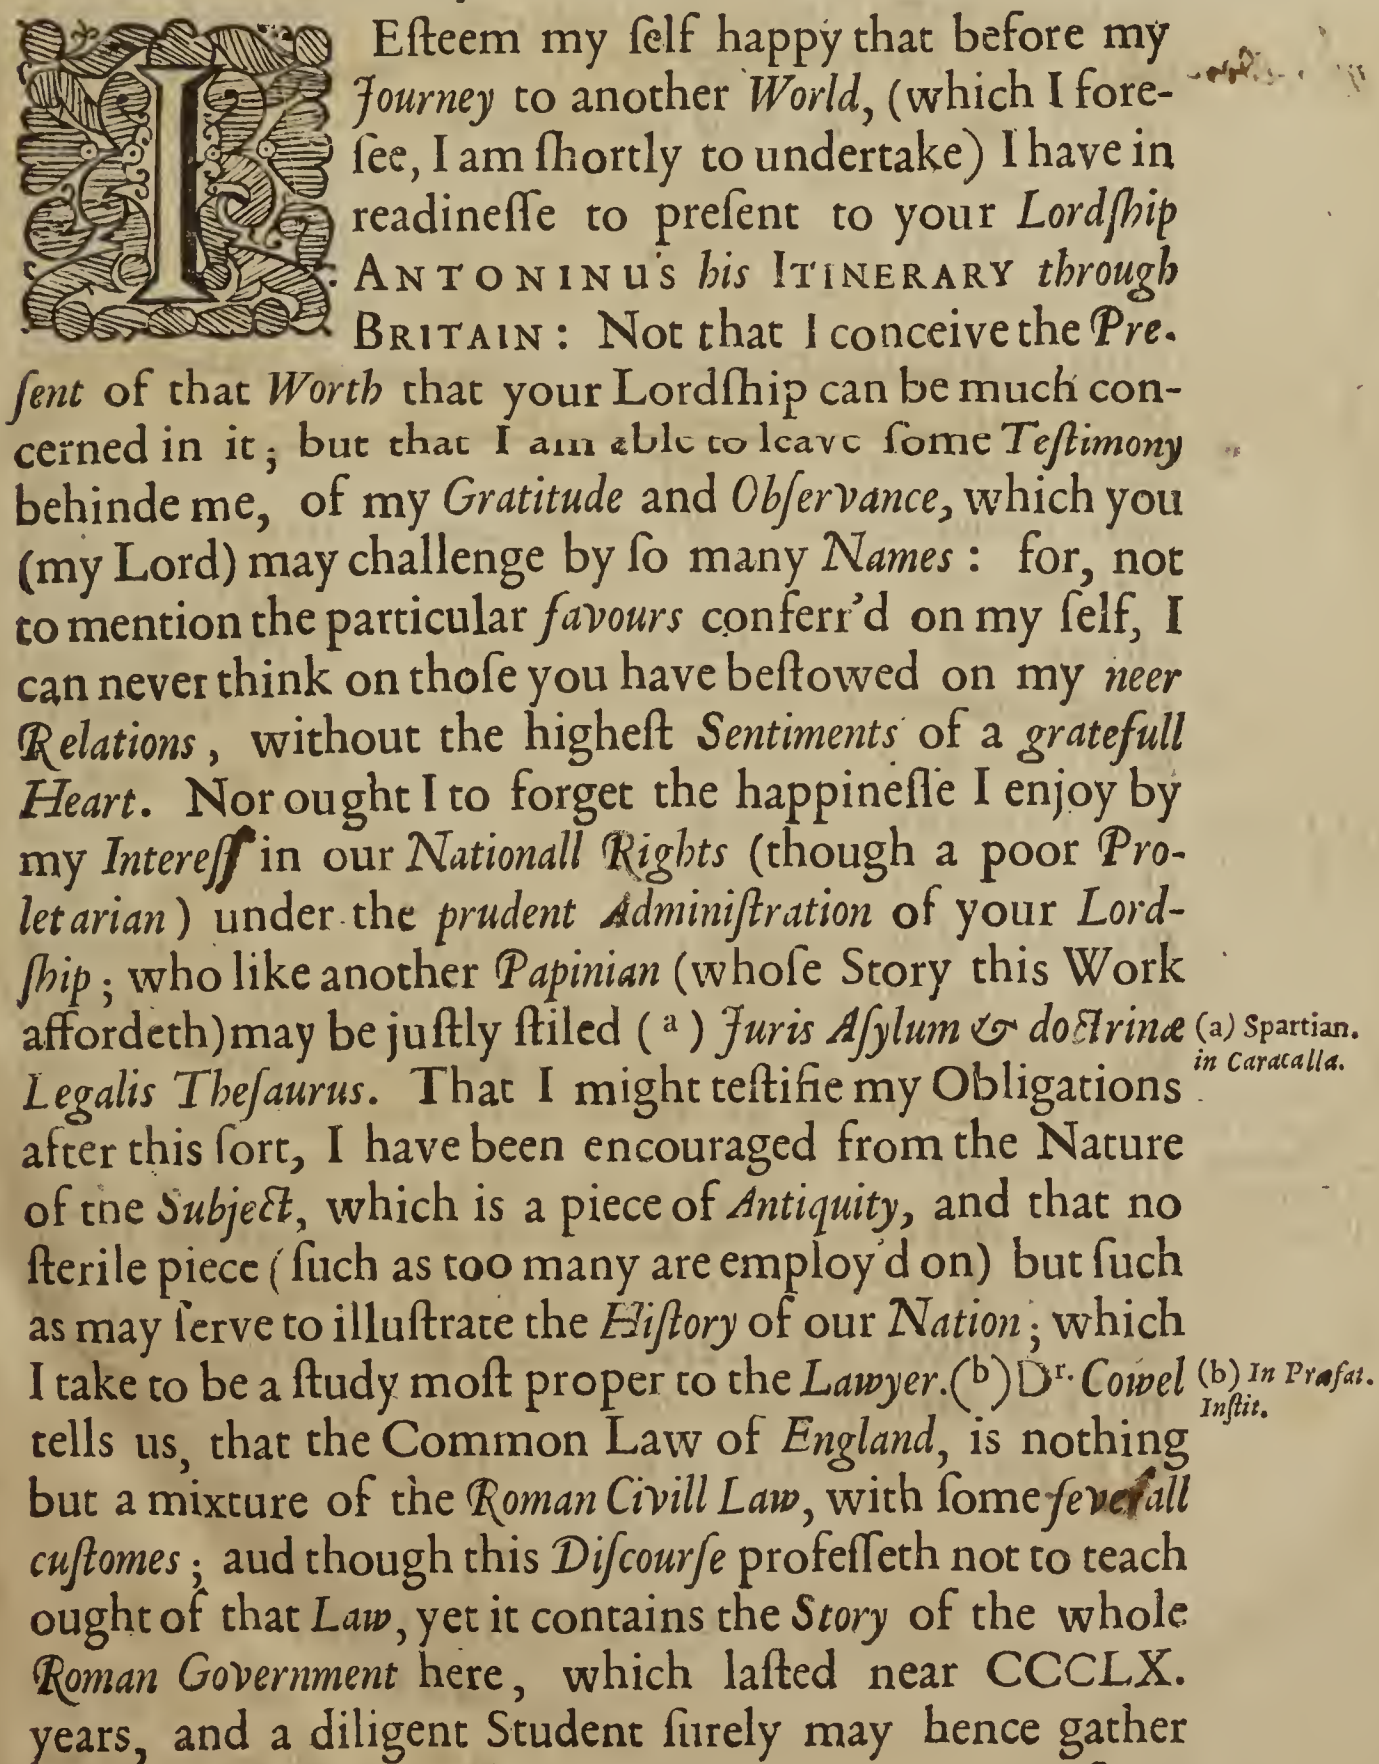 I Eſteem my ſelf happy that before my
Journey to another World, (which I fore-
ſee, I am ſhortly to undertake) I have in
readineſſe to preſent to your Lordſhip
ANTONINUS his ITINERARY through
BRITAIN: Not that I conceive the Pre-
ſent of that Worth that your Lordſhip can be much con-
cerned in it; but that I am able to leave ſome Teſtimony
behinde me, of my Gratitude and Obſervance, which you
(my Lord) may challenge by ſo many Names: for, not
to mention the particular favours conferr'd on my ſelf, I
can never think on thoſe you have beſtowed on my neer
Relations, without the higheſt Sentiments of a gratefull
Heart. Nor ought I to forget the happineſſe I enjoy by
my Intereſſ in our Nationall Rights (though a poor Pro-
letarian) under the prudent Adminiſtration of your Lord-
ſhip; who like another Papinian (whoſe Story this Work
affordeth) may be juſtly ſtiled (a) Juris Aſylum & doctrinæ (a) Spartian.
in Caracalla.
Legalis Theſaurus. That I might teſtifie my Obligations
after this ſort, I have been encouraged from the Nature
of the Subject, which is a piece of Antiquity, and that no
ſterile piece (ſuch as too many are employ'd on) but ſuch
as may ſerve to illuſtrate the Hiſtory of our Nation; which
I take to be a ſtudy moſt proper to the Lawyer. (b) Dr. Cowel (b) In Præfat.
Inſtit.
tells us, that the Common Law of England, is nothing
but a mixture of the Roman Civill Law, with ſome ſeverall
cuſtomes; aud though this Diſcourſe profeſſeth not to teach
ought of that Law, yet it contains the Story of the whole
Roman Government here, which laſted near CCCLX.
years, and a diligent Student ſurely may hence gather